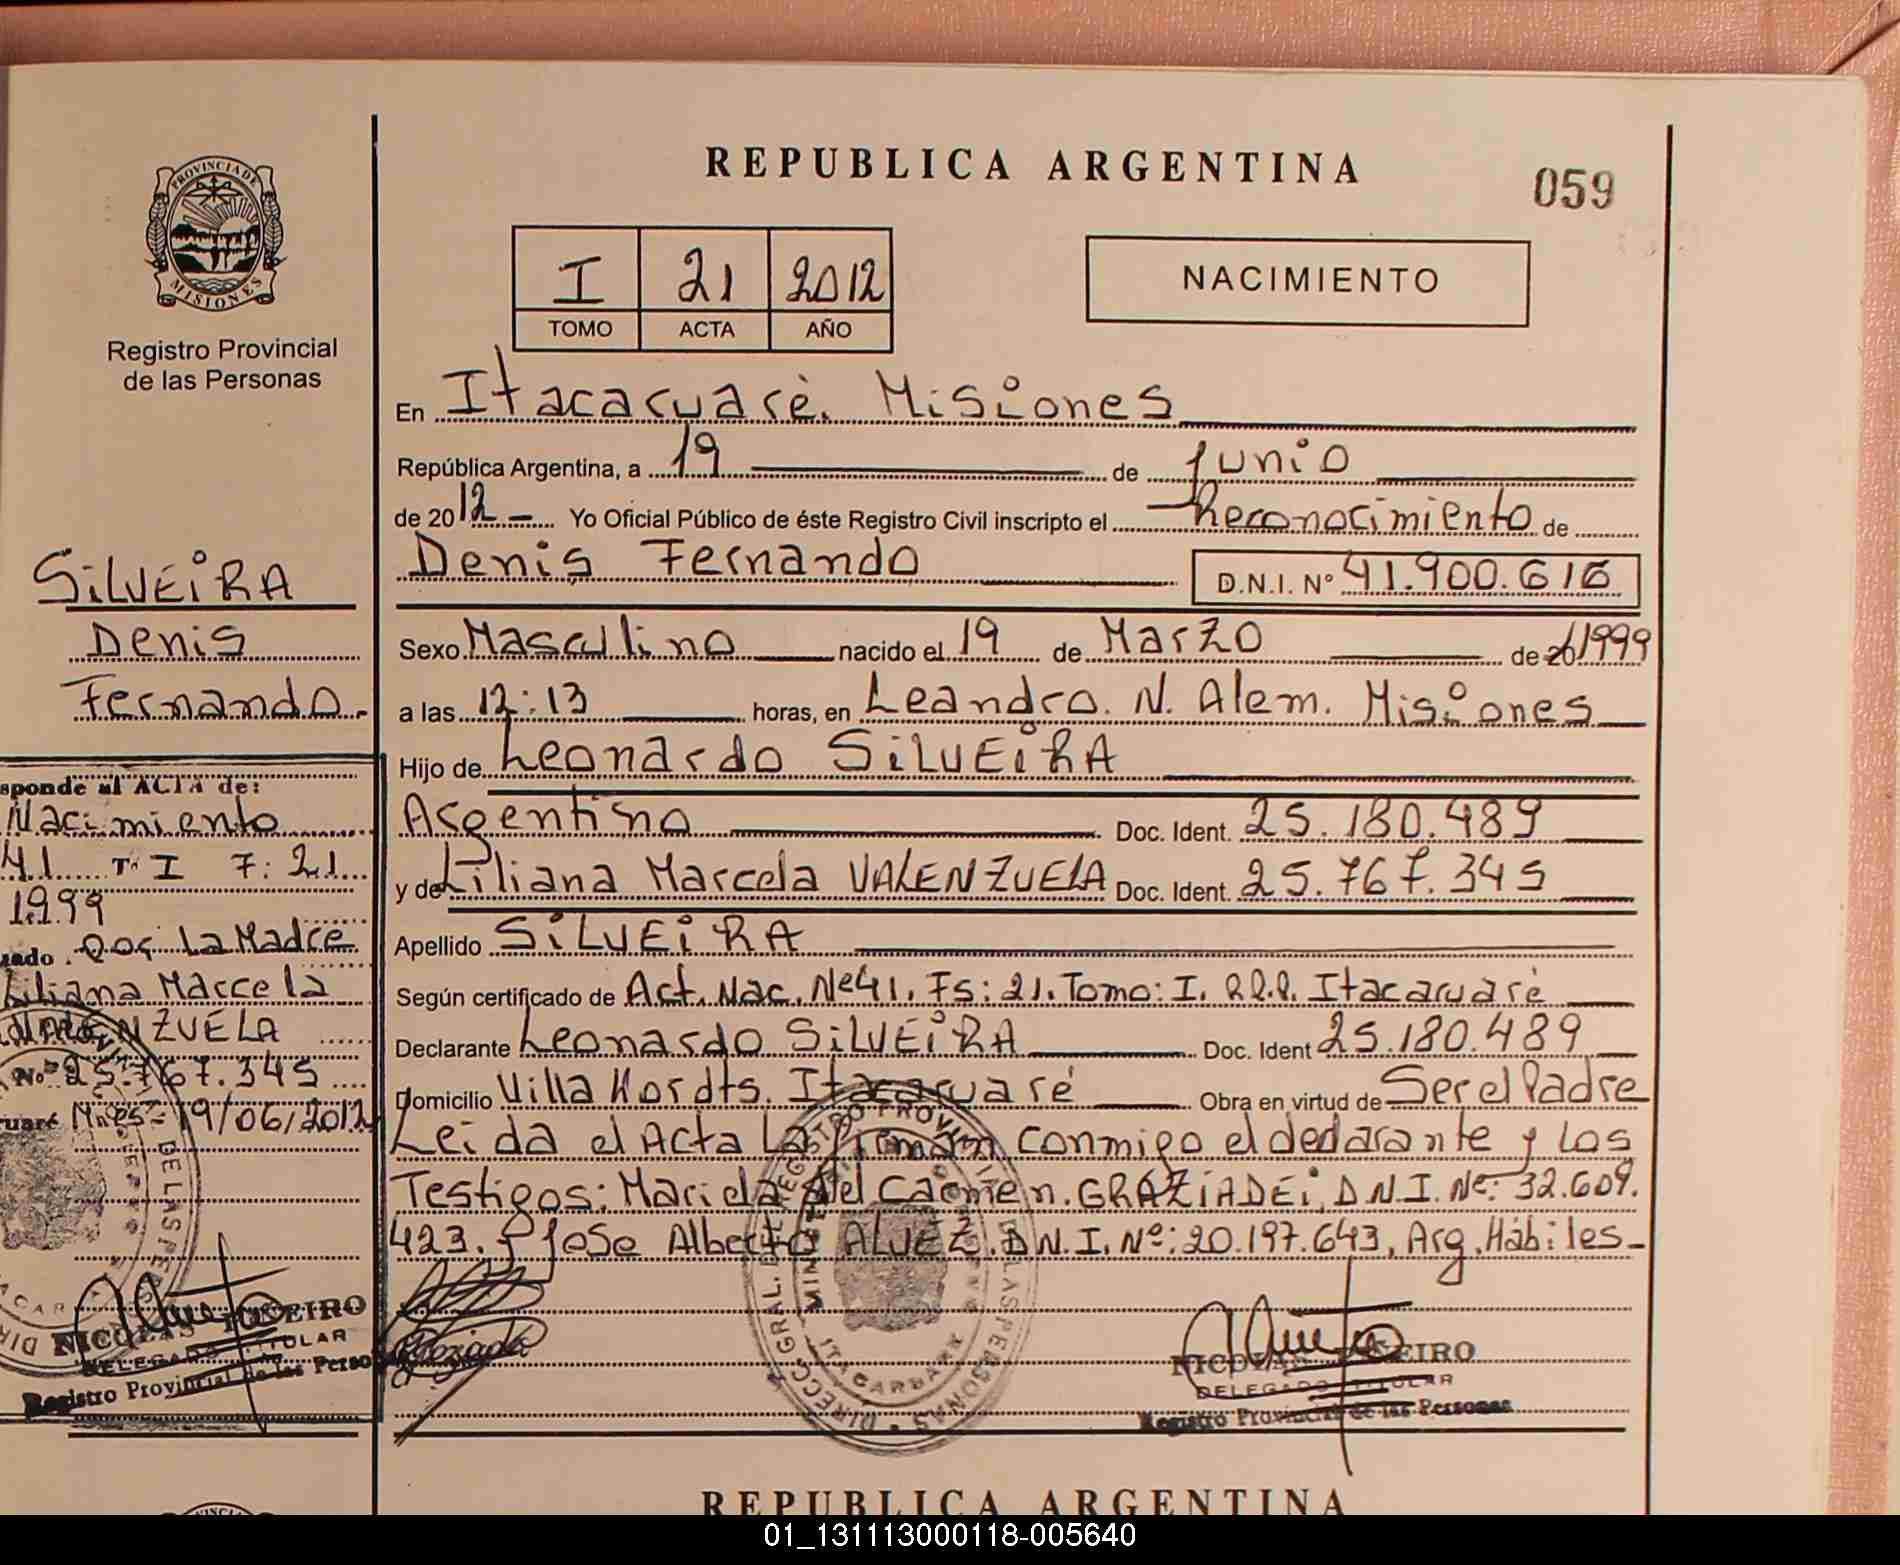 REPUBLICA ARGENTINA
059
PROVINCIA DE
MISIONES
Registro Provincial
de las Personas
I 21 2012
TOMO ACTA AÑO
NACIMIENTO
En Itacaruarè. Misiones
República Argentina, a 19 de junio
de 2012 Yo Oficial Público de éste Registro Civil inscripto el Reconocimiento de
Denis Fernando D.N.I. Nº 41.900.616
Sexo Masculino nacido el 19 de Marzo de 20 1999
a las 12:13 horas, en Leandro. N. Alem. Misiones
Hijo de Leonardo SILVEIRA
Argentino Doc. Ident. 25.180.489
y de Liliana Marcela VALENZUELA Doc. Ident. 25.767.345
Apellido SILVEIRA
Según certificado de Act. Nac. Nº 41. Fs: 21. Tomo: I. R.P.P. Itacaruarè
Declarante Leonardo SILVEIRA Doc. Ident 25.180.489
Domicilio Villa Hordts. Itacaruaré Obra en virtud de Ser el Padre
Leida el Acta La firman conmigo el declarante y Los
Testigos: Mariela del Carmen. GRAZIADEI, D.N.I. Nº: 32.609.
423. y Jose Alberto ALVEZ. D.N.I. Nº: 20.197.643, Arg. Hábiles-
SILVEIRA
Denis
Fernando.
sponde al ACTA de:
Nacimiento
41 Tº I F: 21
1999
por La Madre
Liliana Marcela
VALENZUELA
Nº 25.767.345
Mnes: 19/06/2012
NICOLAS
DELEGADO TITULAR
Registro Provincial de las Perso
DIRECC. GRAL. DE REGISTRO PROVINCIAL DE LAS PERSONAS
ITACARUARE
NICOLAS
DELEGADO TITULAR
Registro Provincial de las Personas
REPUBLICA ARGENTINA
01_131113000118-005640